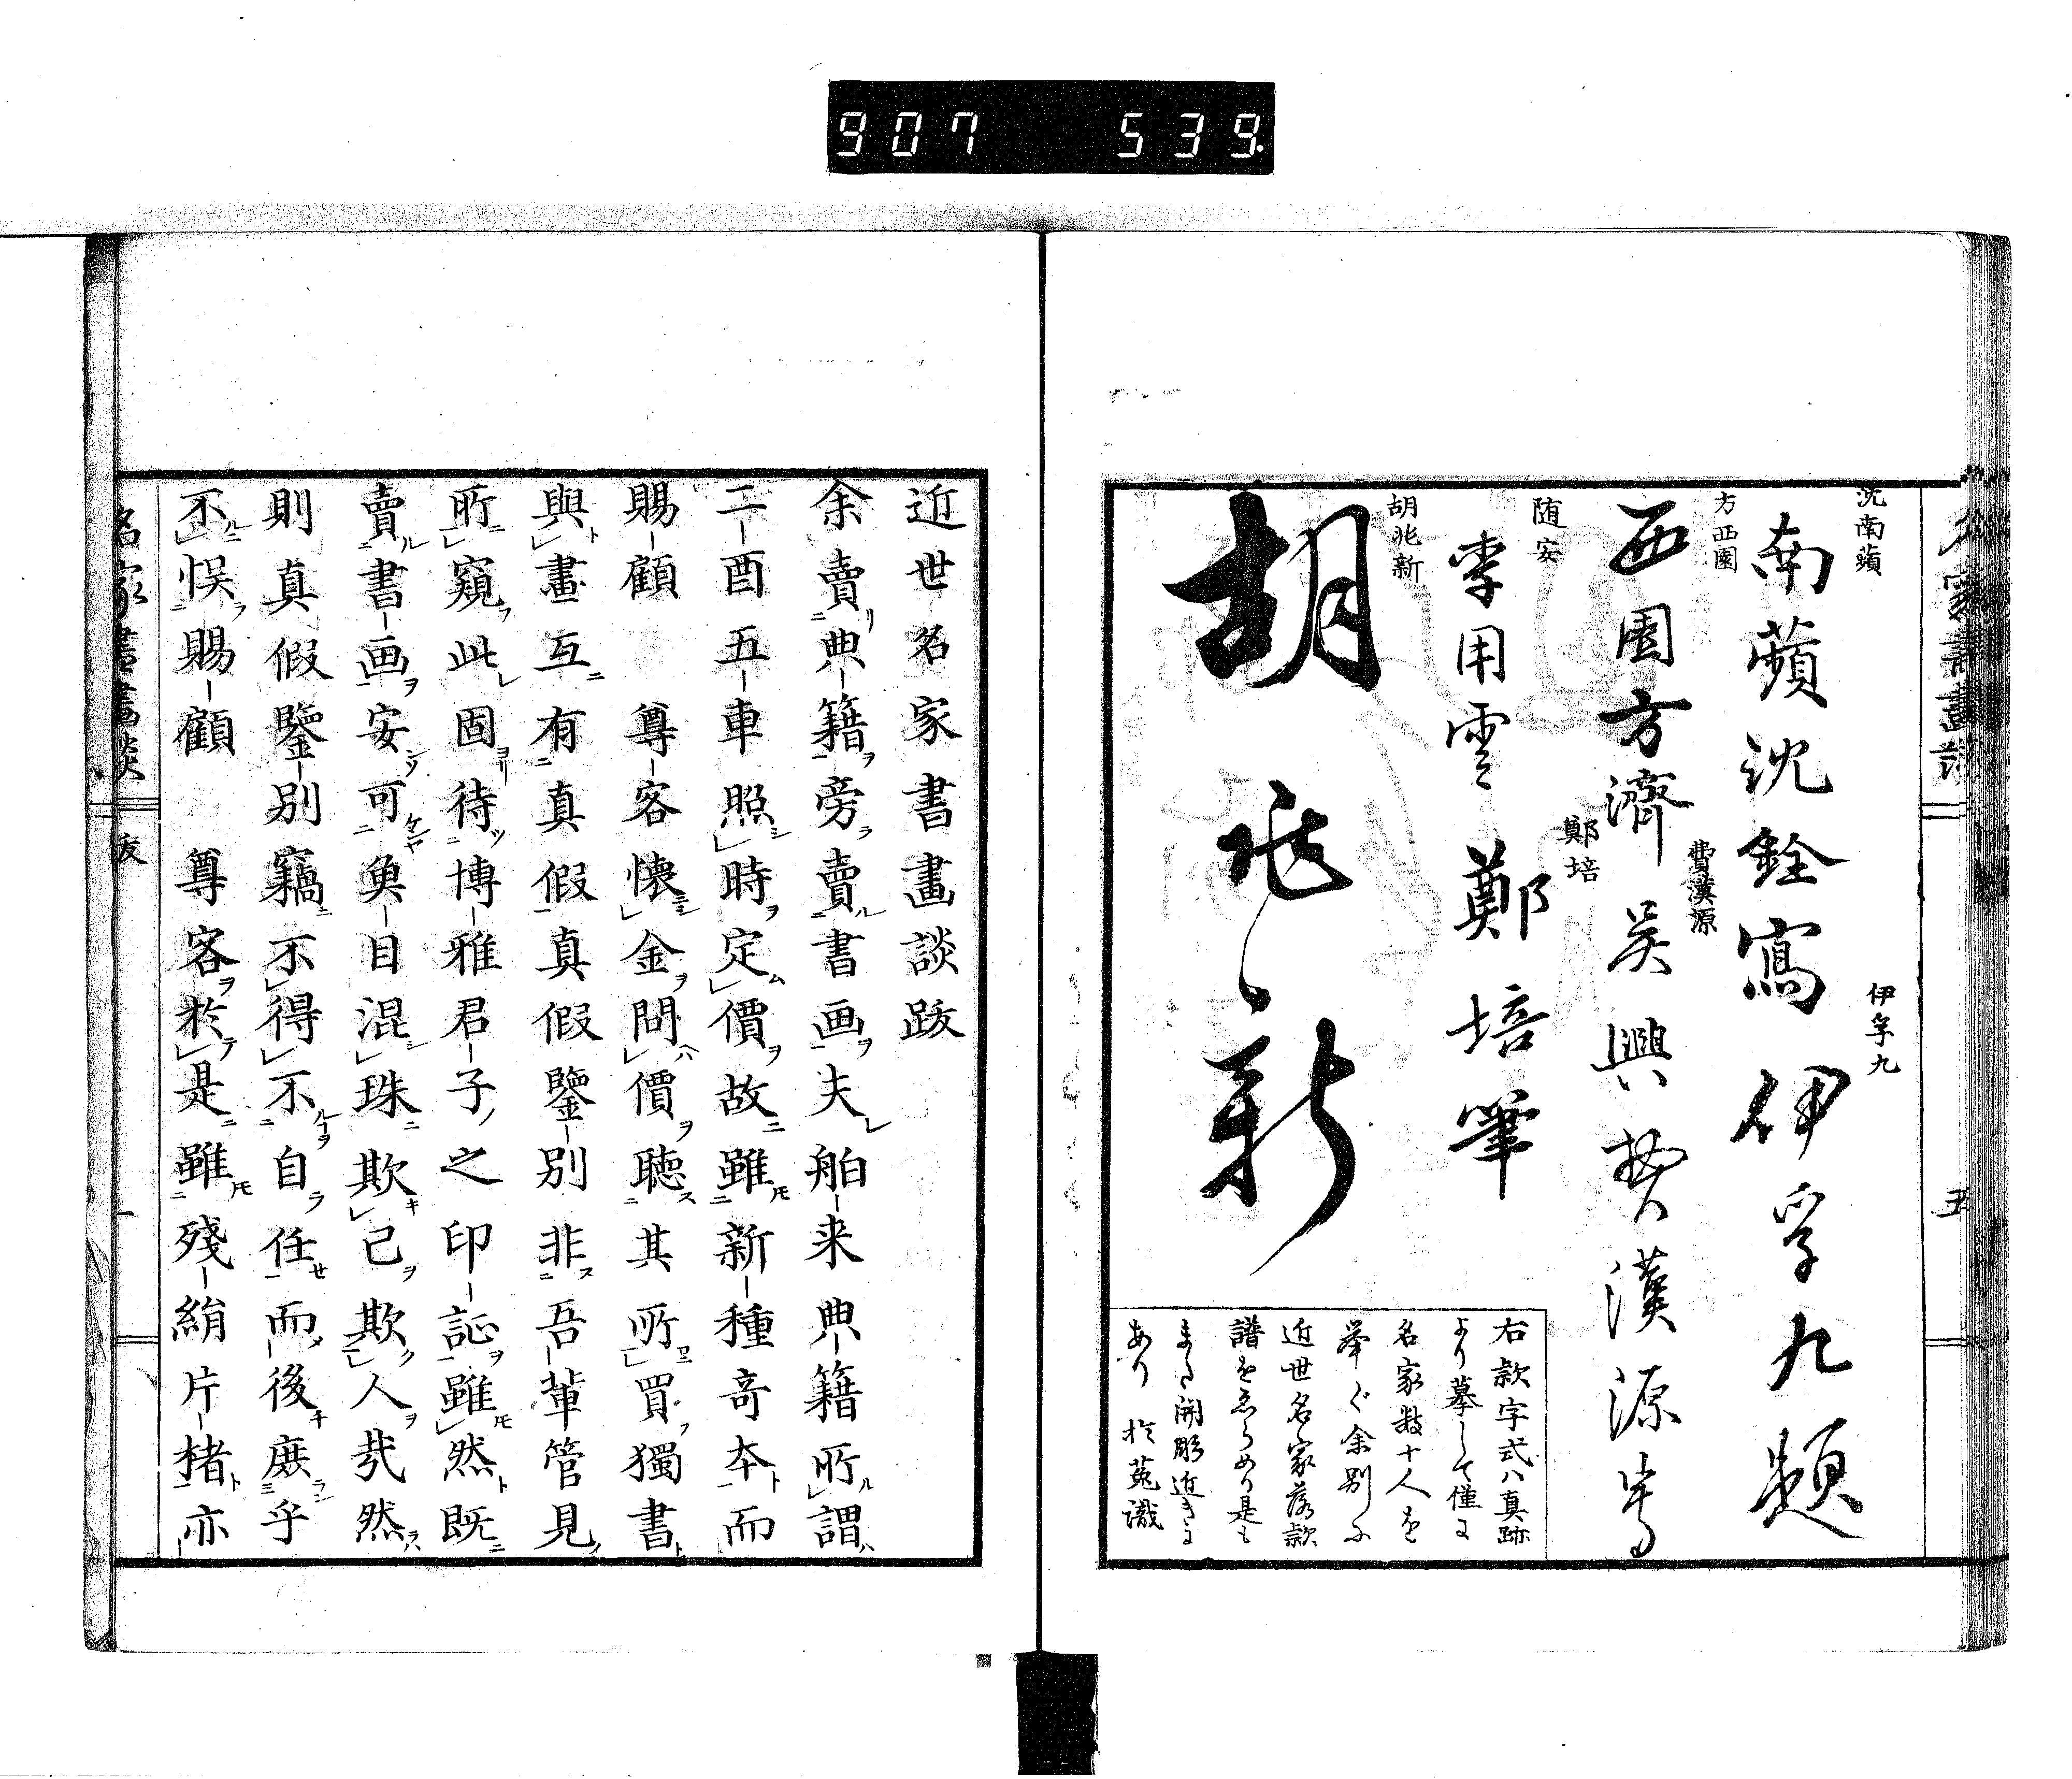 907 539.
名家書畫談
五
沈南蘋
南蘋沈銓寫
伊孚九
伊孚九題
方西園
西園方濟
費漢源
吳興費漢源寫
随安
李用雲
鄭培
鄭培筆
胡兆新
胡兆新
右款字式ハ真跡
より摹して僅に
名家数十人を
挙ぐ余別に
近世名家落款
譜をゑらめり是も
また開彫近きに
あり 於菟識
近世名家書畫談跋
余賣典籍旁賣書画夫舶来典籍所謂
二酉五車照時定價故雖新種奇本而
賜顧 尊客懐金問價聴其所買獨書
與畫互有真假真假鑒別非吾輩管見
所窺此固待博雅君子之印証雖然既
賣書画安可魚目混珠欺己欺人哉然
則真假鑒別竊不得不自任而後庶乎
不悞賜顧 尊客於是雖殘絹片楮亦
名家書畫談
跋
一